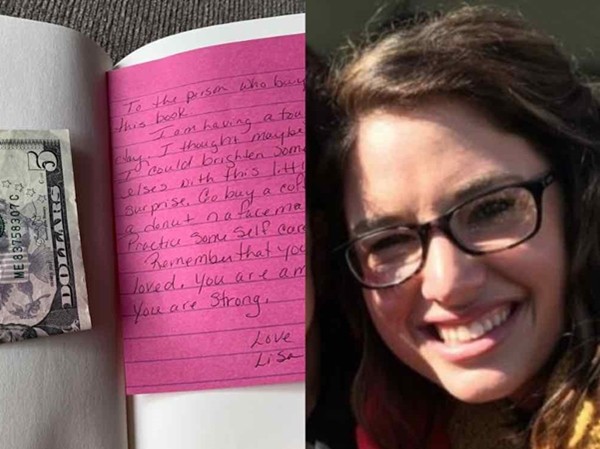 To the person who buy
this book.
I am having a tou
day. I thought maybe
I could brighten som
elses with this litt
surprise. Go buy a cof
a donut n a face ma
Practice some self car
Remember that you
loved. You are am
You are Strong.
Love
Lisa
5
ME83758307C